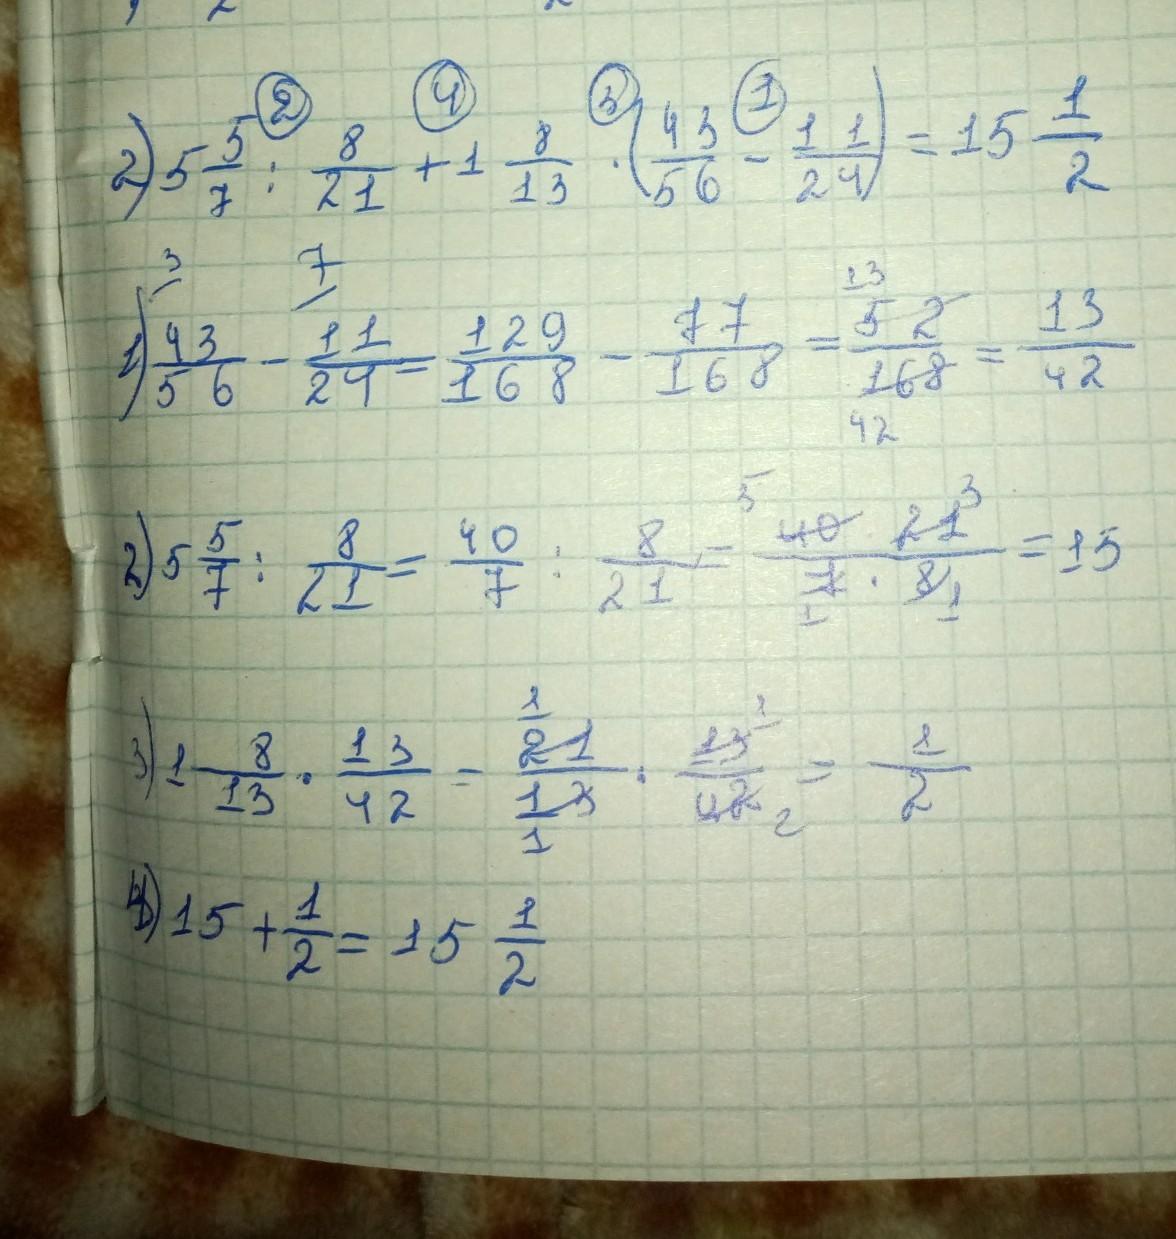 2) 5 5/7 : 8/21 + 1 8/13 · (43/56 - 11/24) = 15 1/2
1) 43/56 - 11/24 = 129/168 - 77/168 = 52/168 = 13/42
2) 5 5/7 : 8/21 = 40/7 : 8/21 = 40 · 21/7 · 8 = 15
3) 1 8/13 · 13/42 = 21/13 · 13/42 = 1/2
4) 15 + 1/2 = 15 1/2